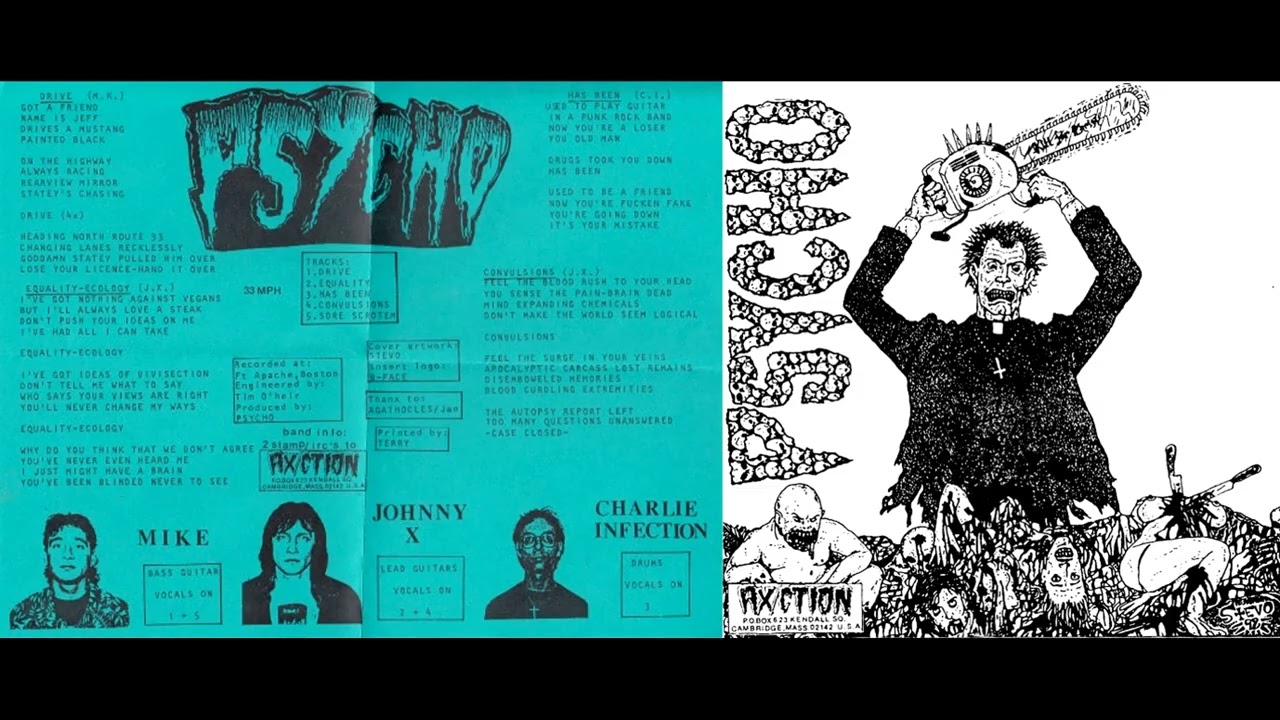 DRIVE (M.K.)
GOT A FRIEND
NAME IS JEFF
DRIVES A MUSTANG
PAINTED BLACK
ON THE HIGHWAY
ALWAYS RACING
REARVIEW MIRROR
STATEY'S CHASING
DRIVE (4x)
HEADING NORTH ROUTE 33
CHANGING LANES RECKLESSLY
GODDAMN STATEY PULLED HIM OVER
LOSE YOUR LICENCE-HAND IT OVER
EQUALITY-ECOLOGY (J.X.)
I'VE GOT NOTHING AGAINST VEGANS
BUT I'LL ALWAYS LOVE A STEAK
DON'T PUSH YOUR IDEAS ON ME
I'VE HAD ALL I CAN TAKE
EQUALITY-ECOLOGY
I'VE GOT IDEAS OF VIVISECTION
DON'T TELL ME WHAT TO SAY
WHO SAYS YOUR VIEWS ARE RIGHT
YOU'LL NEVER CHANGE MY WAYS
EQUALITY-ECOLOGY
WHY DO YOU THINK THAT WE DON'T AGREE
YOU'VE NEVER EVEN HEARD ME
I JUST MIGHT HAVE A BRAIN
YOU'VE BEEN BLINDED NEVER TO SEE
PSYCHO
33 MPH
TRACKS:
1.DRIVE
2.EQUALITY
3.HAS BEEN
4.CONVULSIONS
5.SORE SCROTEM
Recorded at:
Ft Apache,Boston
Engineered by:
Tim O'heir
Produced by:
PSYCHO
Cover artwork:
STEVO
insert logo:
B-FACE
Thanx to:
AGATHOCLES/Jan
Printed by:
TERRY
band info:
2 stamp/irc's to
AX/CTION
P.O.BOX 623 KENDALL SQ.
CAMBRIDGE,MASS.02142 U.S.A
HAS BEEN (C.I.)
USED TO PLAY GUITAR
IN A PUNK ROCK BAND
NOW YOU'RE A LOSER
YOU OLD MAN
DRUGS TOOK YOU DOWN
HAS BEEN
USED TO BE A FRIEND
NOW YOU'RE FUCKEN FAKE
YOU'RE GOING DOWN
IT'S YOUR MISTAKE
CONVULSIONS (J.X.)
FEEL THE BLOOD RUSH TO YOUR HEAD
YOU SENSE THE PAIN-BRAIN DEAD
MIND EXPANDING CHEMICALS
DON'T MAKE THE WORLD SEEM LOGICAL
CONVULSIONS
FEEL THE SURGE IN YOUR VEINS
APOCALYPTIC CARCASS LOST REMAINS
DISEMBOWELED MEMORIES
BLOOD CURDLING EXTREMITIES
THE AUTOPSY REPORT LEFT
TOO MANY QUESTIONS UNANSWERED
-CASE CLOSED-
MIKE
BASS GUITAR
VOCALS ON
1 + 5
JOHNNY
X
LEAD GUITARS
VOCALS ON
2 + 4
CHARLIE
INFECTION
DRUMS
VOCALS ON
3
PSYCHO
AX/CTION
P.O.BOX 623 KENDALL SQ.
CAMBRIDGE,MASS.02142 U.S.A
STEVO